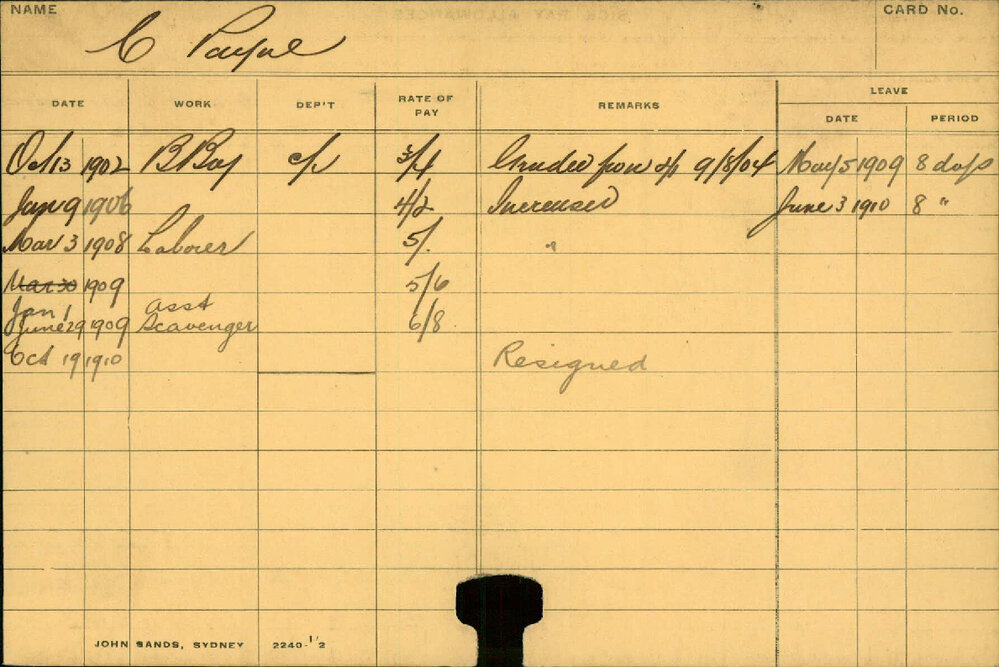 NAME C Payne CARD No.
DATE WORK DEP'T RATE OF PAY REMARKS LEAVE
DATE PERIOD
Oct 13 1902 B Boy c/p 3/4 Graded from 9/8/04 May 5 1909 8 days
Jan 9 1906 4/2 Increased June 3 1910 8 "
Mar 3 1908 Laborer 5/. "
Mar 30 1909 5/6
Jan 1 asst
June 29 1909 Scavenger 6/8
Oct 19 1910 Resigned
JOHN SANDS, SYDNEY 2240-1/2